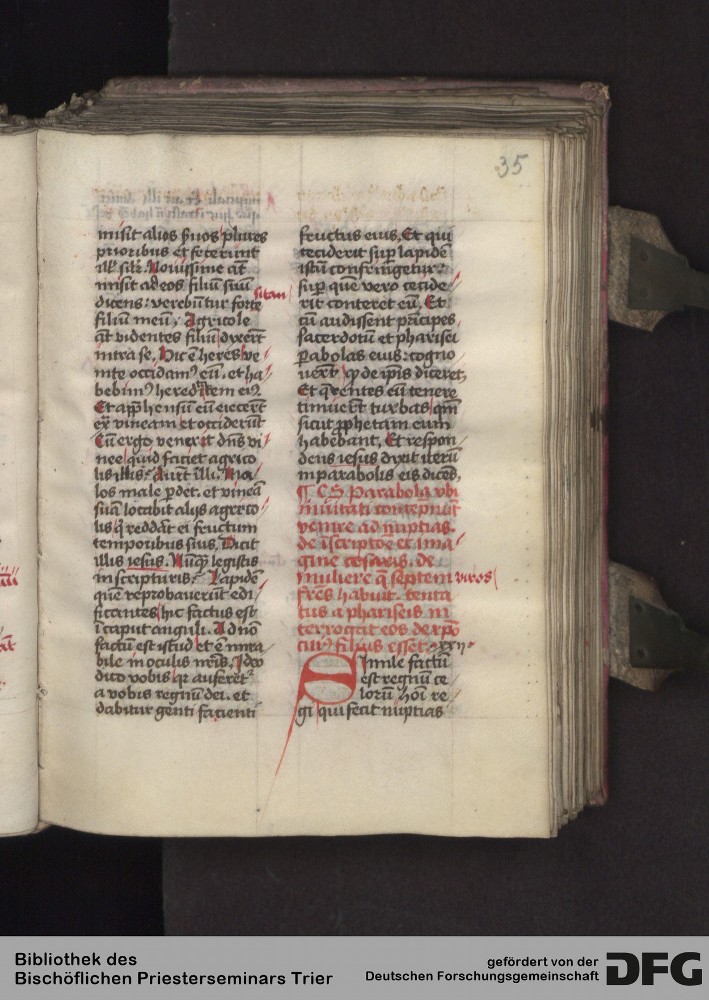 35
misit alios s̄uos plures
prioribus et fecerunt
ill' sil'r. Nouissime āt
misit ad eos filiū suū
dicens: verebūtur forte forsitan
filiū meū. Agricole
āt videntes filiū dixerūt
intra se. Hic ē heres ve
nite occidamꝰ eū. et ha
bebimꝰ hereditatem eiꝰ.
Et app̄hensū eū eiecerūt
ex̄ vineam et occiderūt
Cū ergo venerit dn̄s vi
nee quid faciet agrico
lis illis: Aiūt illi. Ma
los male ꝑdet. et vineā
suā locabit alijs agrico
lis q̄ reddāt ei fructum
temporibus suis. Dicit
illis iesus. Nūqꝫ legistis
in scripturis: Lapidē
quē reprobauerūt edi
ficantes hic factus est
ī caput anguli. A dn̄o
factū est istud et ē mira
bile in oculis nr̄is. Ideo
dico vobis qꝛ auferet᷑
a vobis regnū dei. et
dabitur genti facienti
fructus eius. Et qui
ceciderit suꝑ lapidē
istū confringetur:
suꝑ quē vero cecide
rit conteret eū. Et
cū audissent prīcipes
sacerdotū et pharisei
ꝑabolas eius: cogno
uerūt ꝙ de ip̄is diceret.
Et q̄rentes eū tenere
timuerūt turbas qm̄
sicut ꝓphetam eum
habebant. Et respon
dens iesus dixit iterū
in parabolis eis dicēs.
Parabola vbi
inuitati contēpnūt
venire ad nuptias.
de īscriptōe et ima
gine cesaris. de
muliere q̄ septem viros
fr̄es habuit. tenta
tus a phariseis in
terrogat eos de xp̄o
cuiꝰ filius esset. xxij
Simile factū
est regnū ce
lorū hoī re
gi qui fecit nuptias
Bibliothek des
Bischöflichen Priesterseminars Trier
gefördert von der
Deutschen Forschungsgemeinschaft DFG